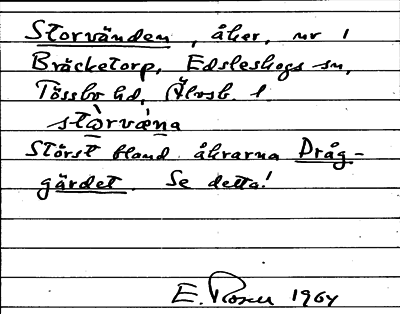 Storvänden, åker, nr 1
Bräcketorp, Edsleskogs sn,
Tössbo hd, Älvsb. l.
stòrvæ̀na
Störst bland åkrarna Dråg-
gärdet. Se detta!
E. Rosen 1964